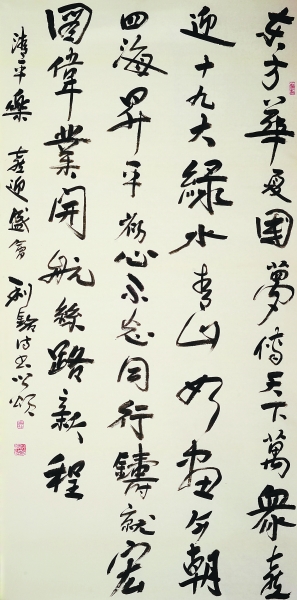 东方華夏圓夢傳天下萬衆喜
迎十九大綠水青山如畫今朝
四海昇平初心不忘同行鑄就宏
圖偉業開航絲路新程
清平樂 喜迎盛會 利詩書以頌